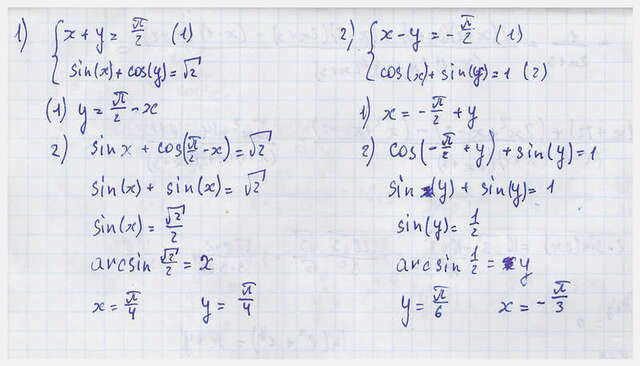 1) { x + y = π/2 (1)
sin(x) + cos(y) = √2
(1) y = π/2 - x
2) sin x + cos(π/2 - x) = √2
sin(x) + sin(x) = √2
sin(x) = √2/2
arcsin √2/2 = x
x = π/4 y = π/4
2) { x - y = -π/2 (1)
cos(x) + sin(y) = 1 (2)
1) x = -π/2 + y
2) cos(-π/2 + y) + sin(y) = 1
sin (y) + sin(y) = 1
sin(y) = 1/2
arcsin 1/2 = y
y = π/6 x = -π/3